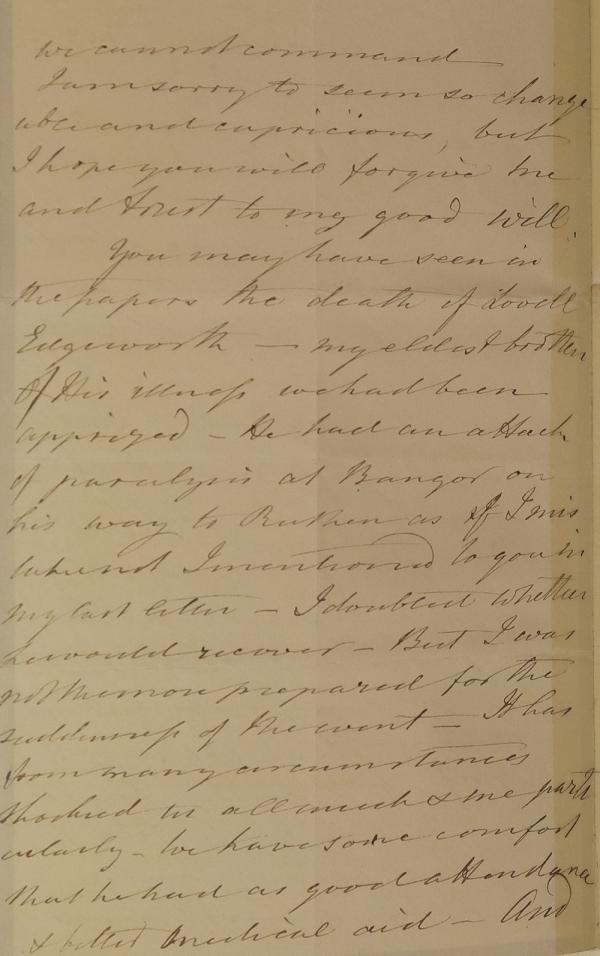 we cannot command
I am sorry to seem so change
able and capricious, but
I hope you will forgive me
and trust to my good will.
You may have seen in
the papers the death of Lovell
Edgeworth — my eldest brother
Of His illness we had been
apprized – He had an attack
of paralysis at Bangor on
his way to Ruthen as If I mis
take not I mentioned to you in
my last letter – I doubted whether
he would recover – But I was
not the more prepared for the
suddenness of the event – It has
from many circumstances
shocked us all much & me parti
cularly – We have some comfort
that he had as good attendance
& better medical aid – And